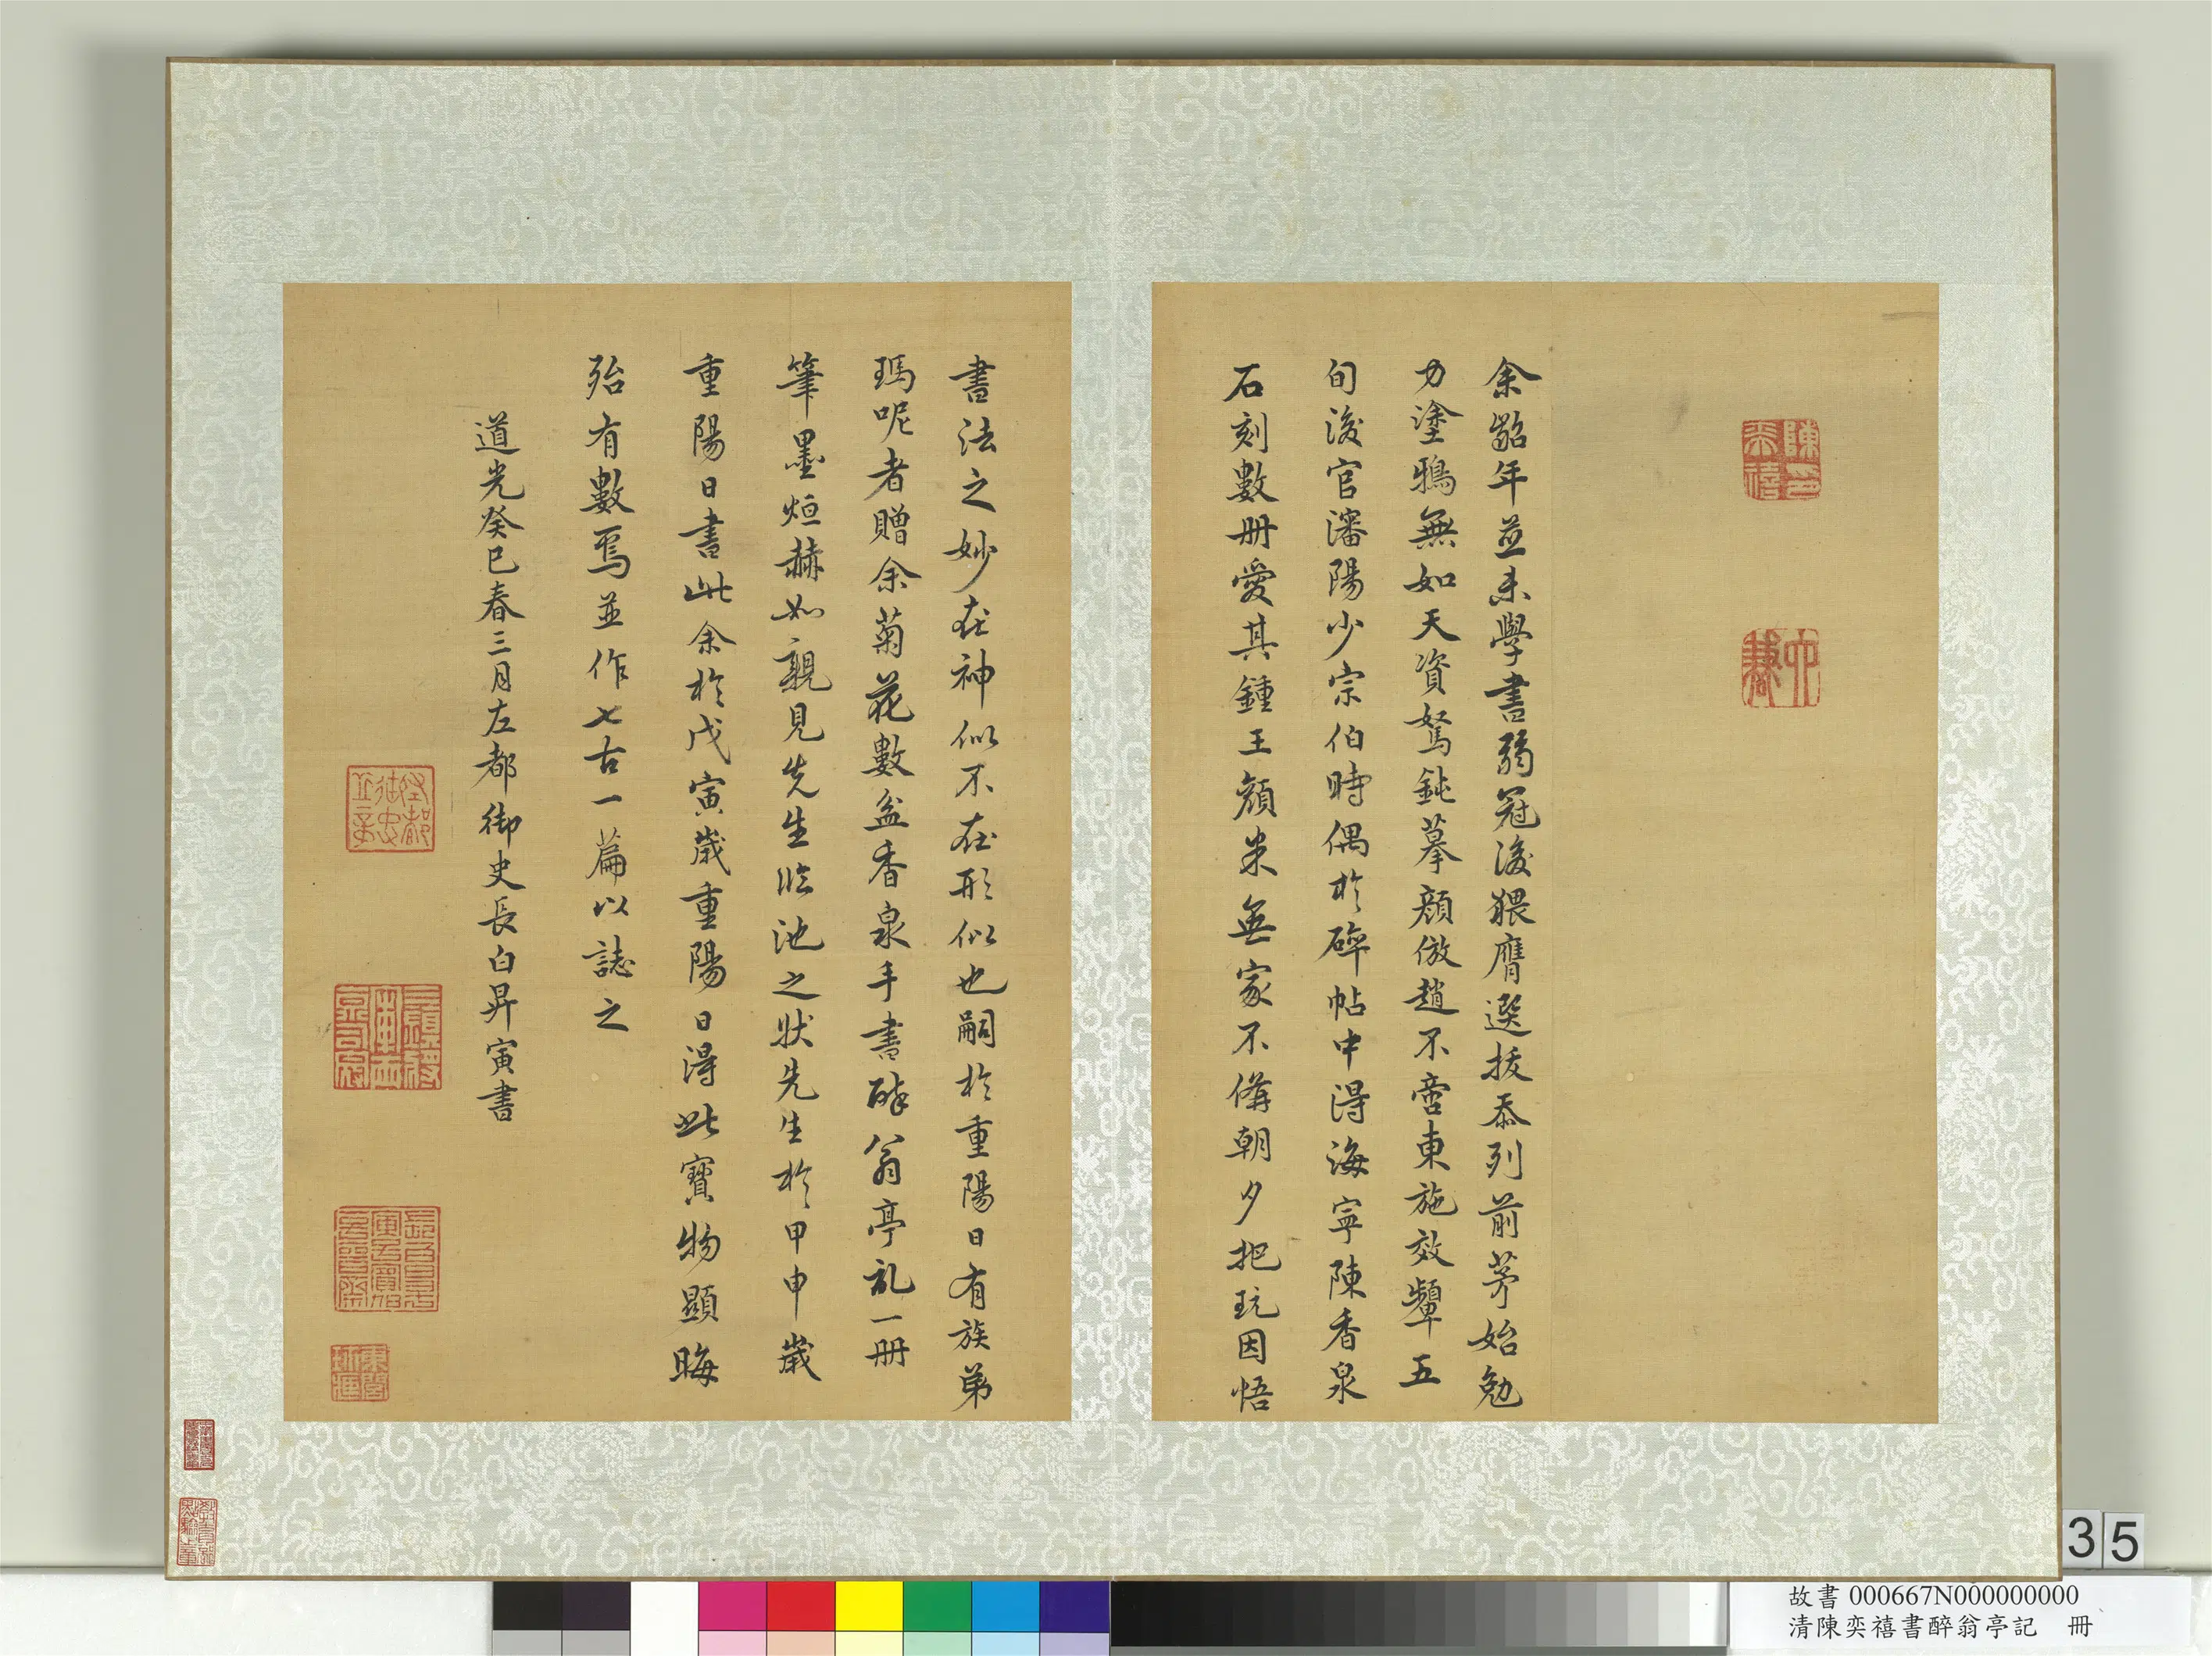 余齠年並未學書弱冠後猥膺選拔忝列前茅始勉
力塗鴉無如天資駑鈍摹顏倣趙不啻東施效顰五
旬後官瀋陽少宗伯時偶於碑帖中得海寧陳香泉
石刻數冊愛其鍾王顏米無家不備朝夕把玩因悟
書法之妙在神似不在形似也嗣於重陽日有族弟
瑪呢者贈余菊花數盆香泉手書醉翁亭記一冊
筆墨烜赫如親見先生臨池之狀先生於甲申歲
重陽日書此余於戊寅歲重陽日得此寶物顯晦
殆有數焉並作七古一篇以誌之
道光癸巳春三月左都御史長白昇寅書
陳奕禧印
六謙
35
故書 000667N000000000
清陳奕禧書醉翁亭記 冊